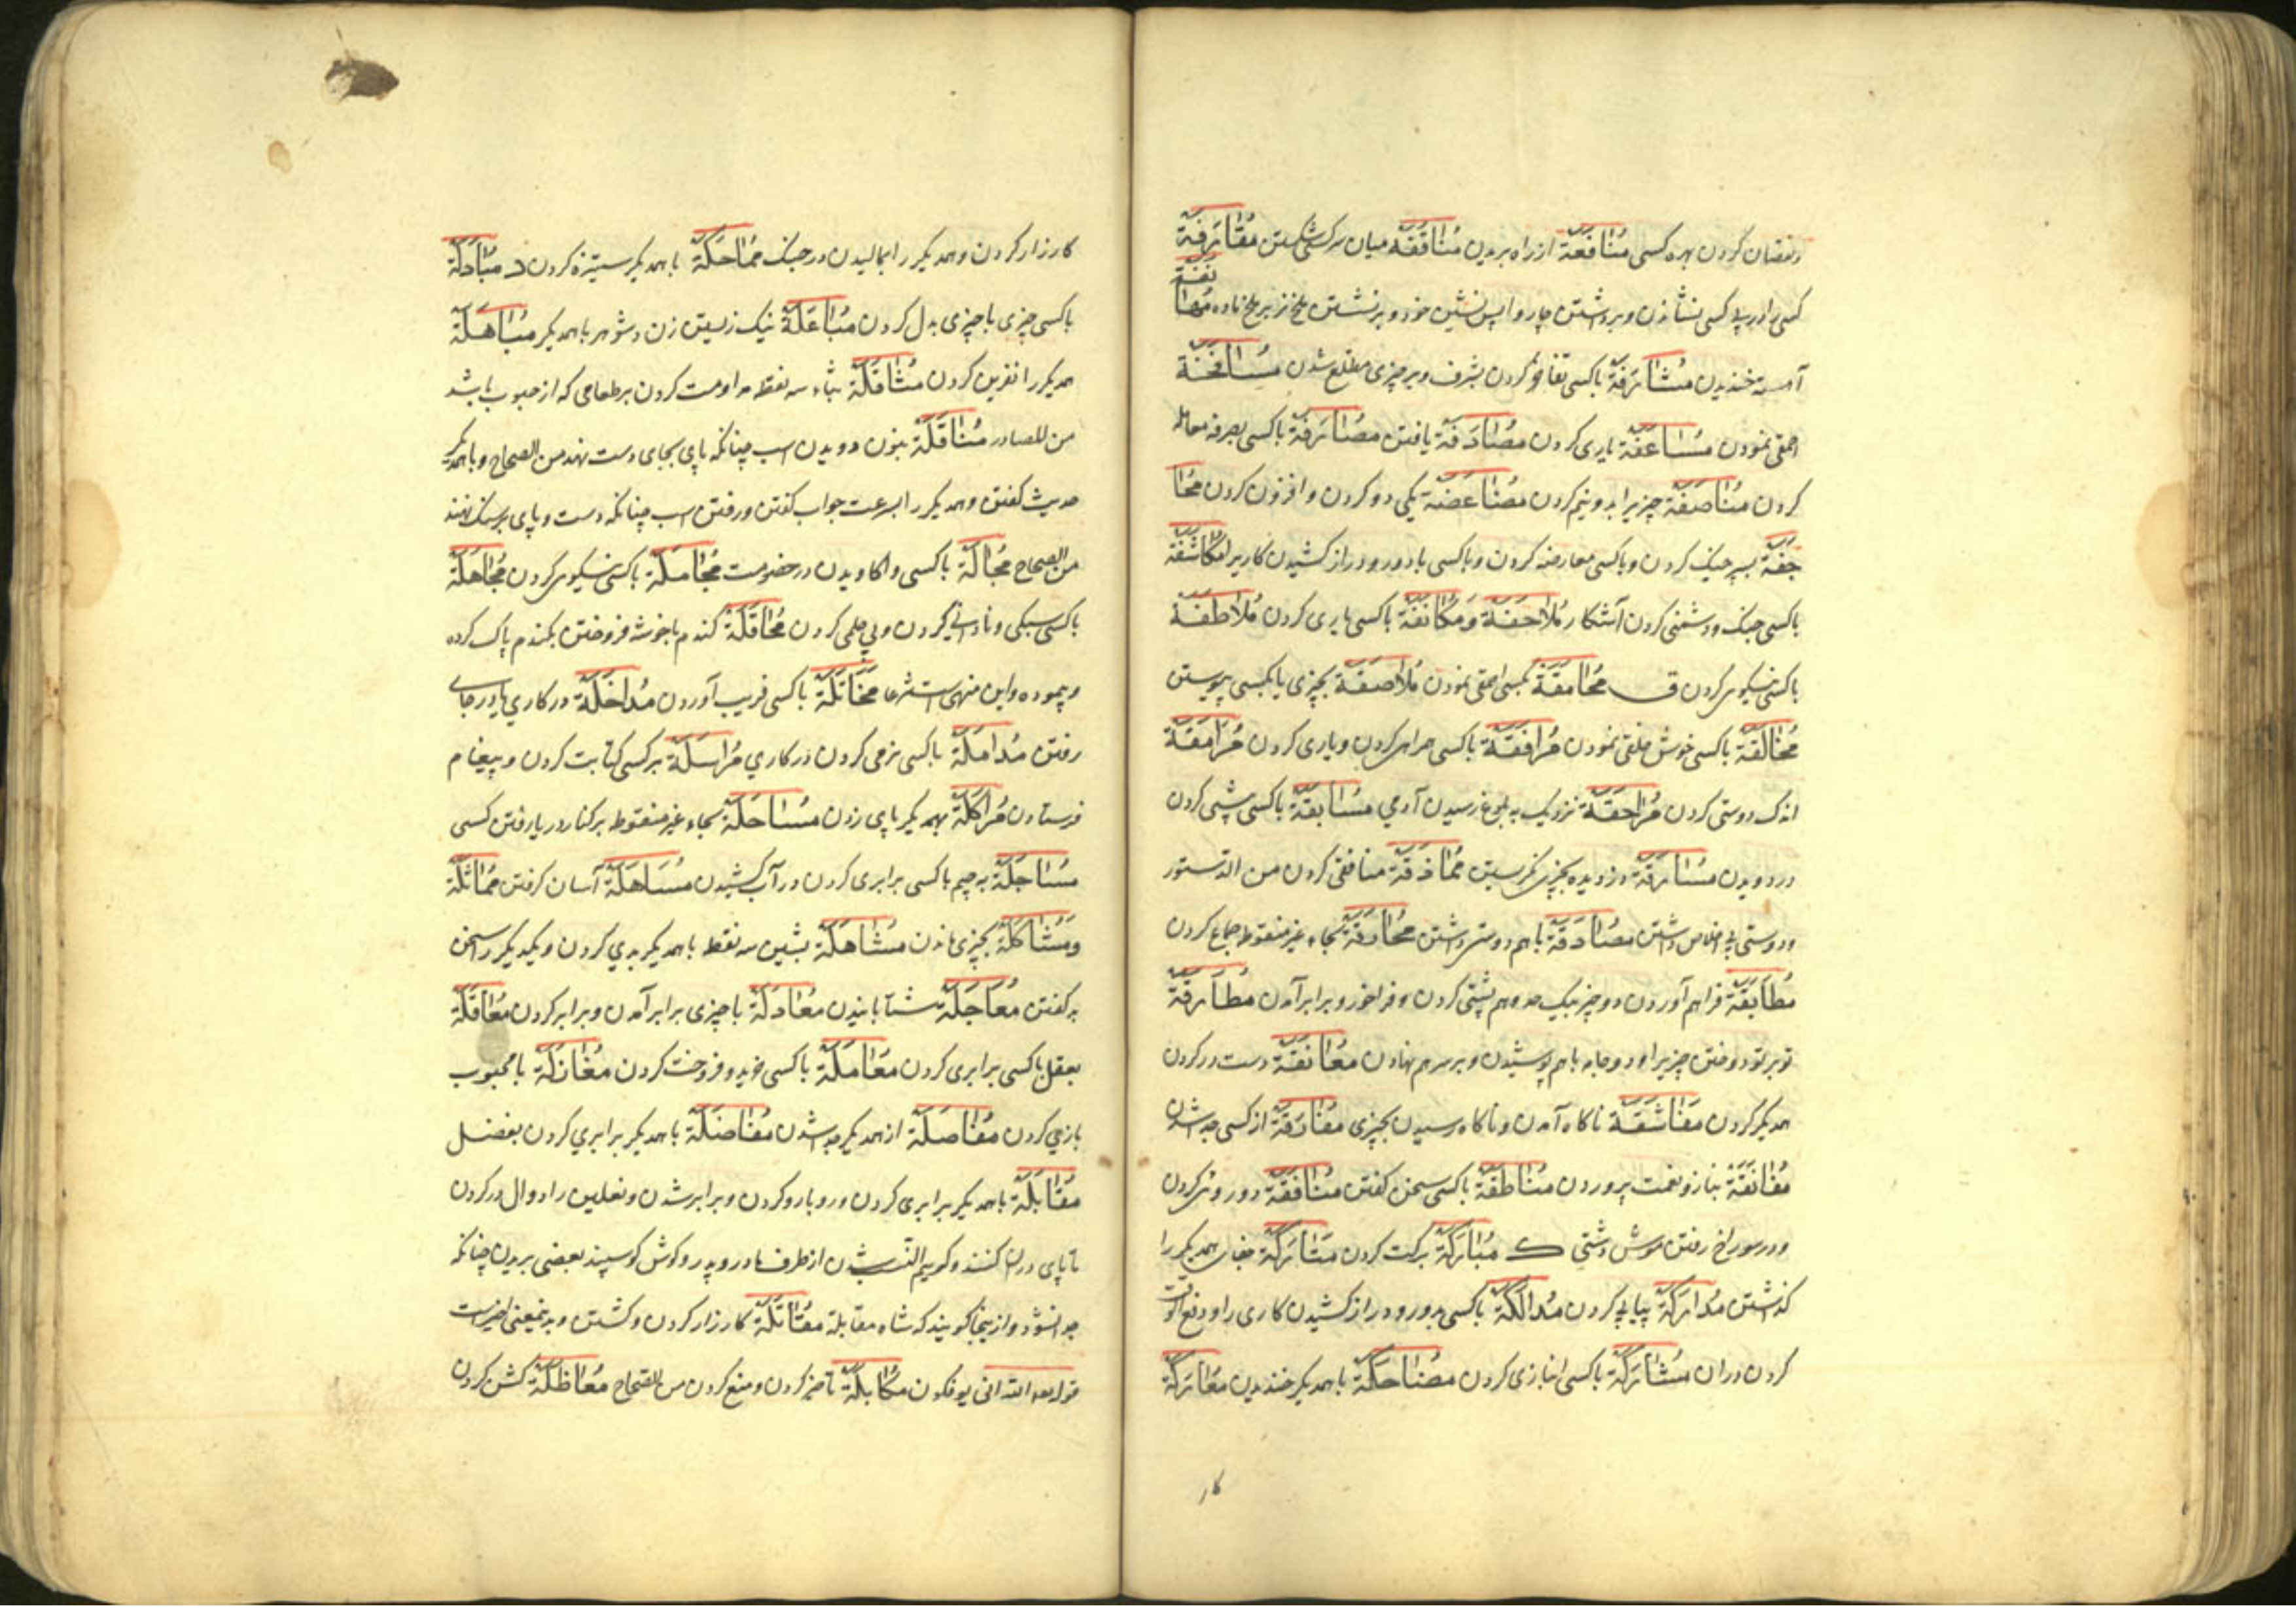 ونقصان کردن بهره کسی مُنَافَعَة از راه بریدن مُنَاقَفَه میان سر کسی شکستن مُقَارَفَة
کسی را در پی کسی نشاندن وبرداشتن چاروا پس نشین خود وبر نشستن ملخ نر بر ملخ ماده مُهَا
نَفَة
آهسته خندیدن مُشَارَفَة باکسی تفاخر کردن بشرف وبر چیزی مطلع شدن مُسَاخَفَة
احمقی نمودن مُسَاعَفَة یاری کردن مُصَادَفَة یافتن مُصَارَفَة باکسی بصرفه معامله
کردن مُنَاصَفَة چیزیرا بدو نیم کردن مُضَاعَفَة یکی دو کردن وافزون کردن مُحَا
جَفَة بسپر جنک کردن وباکسی معارضه کردن وباکسی بادور ودراز کشیدن کاریرا مُکَاشَفَة
باکسی جنک ودشمنی کردن آشکار مُلَاحَفَة وَمُکَانَفَة باکسی یاری کردن مُلَاطَفَة
باکسی نیکوی کردن ق مُحَامَقَة بکسی احمقی نمودن مُلَاصَقَة بچیزی یا بکسی پیوستن
مُخَالَقَة باکسی خوش خلقی نمودن مُرَافَقَة باکسی همراهی کردن ویاری کردن مُرَامَقَة
اندک دوستی کردن مُرَاهَقَة نزدیک به بلوغ رسیدن آدمی مُسَابَقَة باکسی پیشی کردن
در دویدن مُسَارَقَة دزدیده بچیزی نکریستن مُمَاذَقَة منافقی کردن من الدستور
ودوستی بی اخلاص داشتن مُصَادَقَة باهم دوستی داشتن مُحَارَقَة بحاء غیر منقوط جماع کردن
مُطَابَقَة فراهم آوردن دو چیز بیک حد وهم پشتی کردن وفراخور وبرابر آمدن مُطَارَقَة
تو بر تو دوختن چیزیرا ودو جامه باهم پوشیدن وبر سرهم نهادن مُعَانَقَة دست در کردن
همدیکر کردن مُغَافَصَة ناکاه آمدن وناکاه رسیدن بچیزی مُفَارَقَة از کسی جدا شدن
مُفَانَقَة بناز ونعمت پروردن مُنَاطَقَة باکسی سخن کفتن مُنَافَقَة دو روئی کردن
ودر سوراخ رفتن موش دشتی ک مُبَارَکَة برکت کردن مُتَارَکَة همدیکر را
کذاشتن مُدَارَکَة پیاپی کردن مُدَالَکَة باکسی بدور ودراز کشیدن کاری را ودفع الوقت
کردن دران مُشَارَکَة باکسی انبازی کردن مُضَاحَکَة باهمدیکر خندیدن مُعَارَکَة
کار
کارزار کردن وهمدیکر را بمالیدن در جنک مُمَاحَکَة باهمدیکر ستیزه کردن مُبَادَلَة
باکسی چیزی باچیزی بدل کردن مُبَاعَلَة نیک زیستن زن وشوهر باهمدیکر مُبَاهَلَة
همدیکر را نفرین کردن مُثَافَلَة بثاء سه نقطه مداومت کردن بر طعامی که از حبوب باشد
من المصادر مُنَاقَلَة بنون دویدن اسب چنانکه پای بجای دست نهد من الصحاح وباهمدیکر
حدیث کفتن وهمدیکر را بسرعت جواب کفتن ورفتن اسب چنانکه دست وپای بر سنک نهند
من الصحاح مُجَالَة باکسی واکاویدن در خصومت مُجَامَلَة باکسی نیکوی کردن مُجَاهَلَة
باکسی سبکی ونادانی کردن وبی حلمی کردن مُحَاقَلَة کندم باخوشه فروختن بکندم پاک کرده
وپیموده واین منهی است شرعا مُخَاتَلَة باکسی فریب آوردن مُدَاخَلَة در کاری یا در جای
رفتن مُدَامَلَة باکسی نرمی کردن در کاری مُرَاسَلَة بر کسی کتابت کردن وپیغام
فرستادن مُرَاکَلَة بهمدیکر پای زدن مُسَاحَلَة بحاء غیر منقوط بر کنار دریا رفتن کسی
مُسَاجَلَة بجیم باکسی برابری کردن در آب کشیدن مُسَاهَلَة آسان کرفتن مُمَاثَلَة
وَمُشَاکَلَة بچیزی ماندن مُشَاهَلَة بشین سه نقطه باهمدیکر بدی کردن ویکدیکر را سخن
بد کفتن مُعَاجَلَة شتابانیدن مُعَادَلَة باچیزی برابر آمدن وبرابر کردن مُعَاقَلَة
بعقل باکسی برابری کردن مُعَامَلَة باکسی خرید وفروخت کردن مُغَازَلَة بامحبوب
بازی کردن مُفَاصَلَة از همدیکر جدا شدن مُفَاضَلَة باهمدیکر برابری کردن بفضل
مُقَابَلَة باهمدیکر برابری کردن ورو بارو کردن وبرابر شدن ونعلین را دوال در کردن
تا پای دران کنند وکریم النسب شدن از طرف مادر وپدر وکوش کوسپند بعضی بریدن چنانکه
جدا نشود واز ینجا کویند که شاه مقابله مُقَاتَلَة کارزار کردن وکشتن وبدینمعنی اخیر است
قوله تعالی قاتلهم الله انی یوفکون مُکَابَلَة تأخیر کردن ومنع کردن من الصحاح مُعَاظَلَة کشن کردن